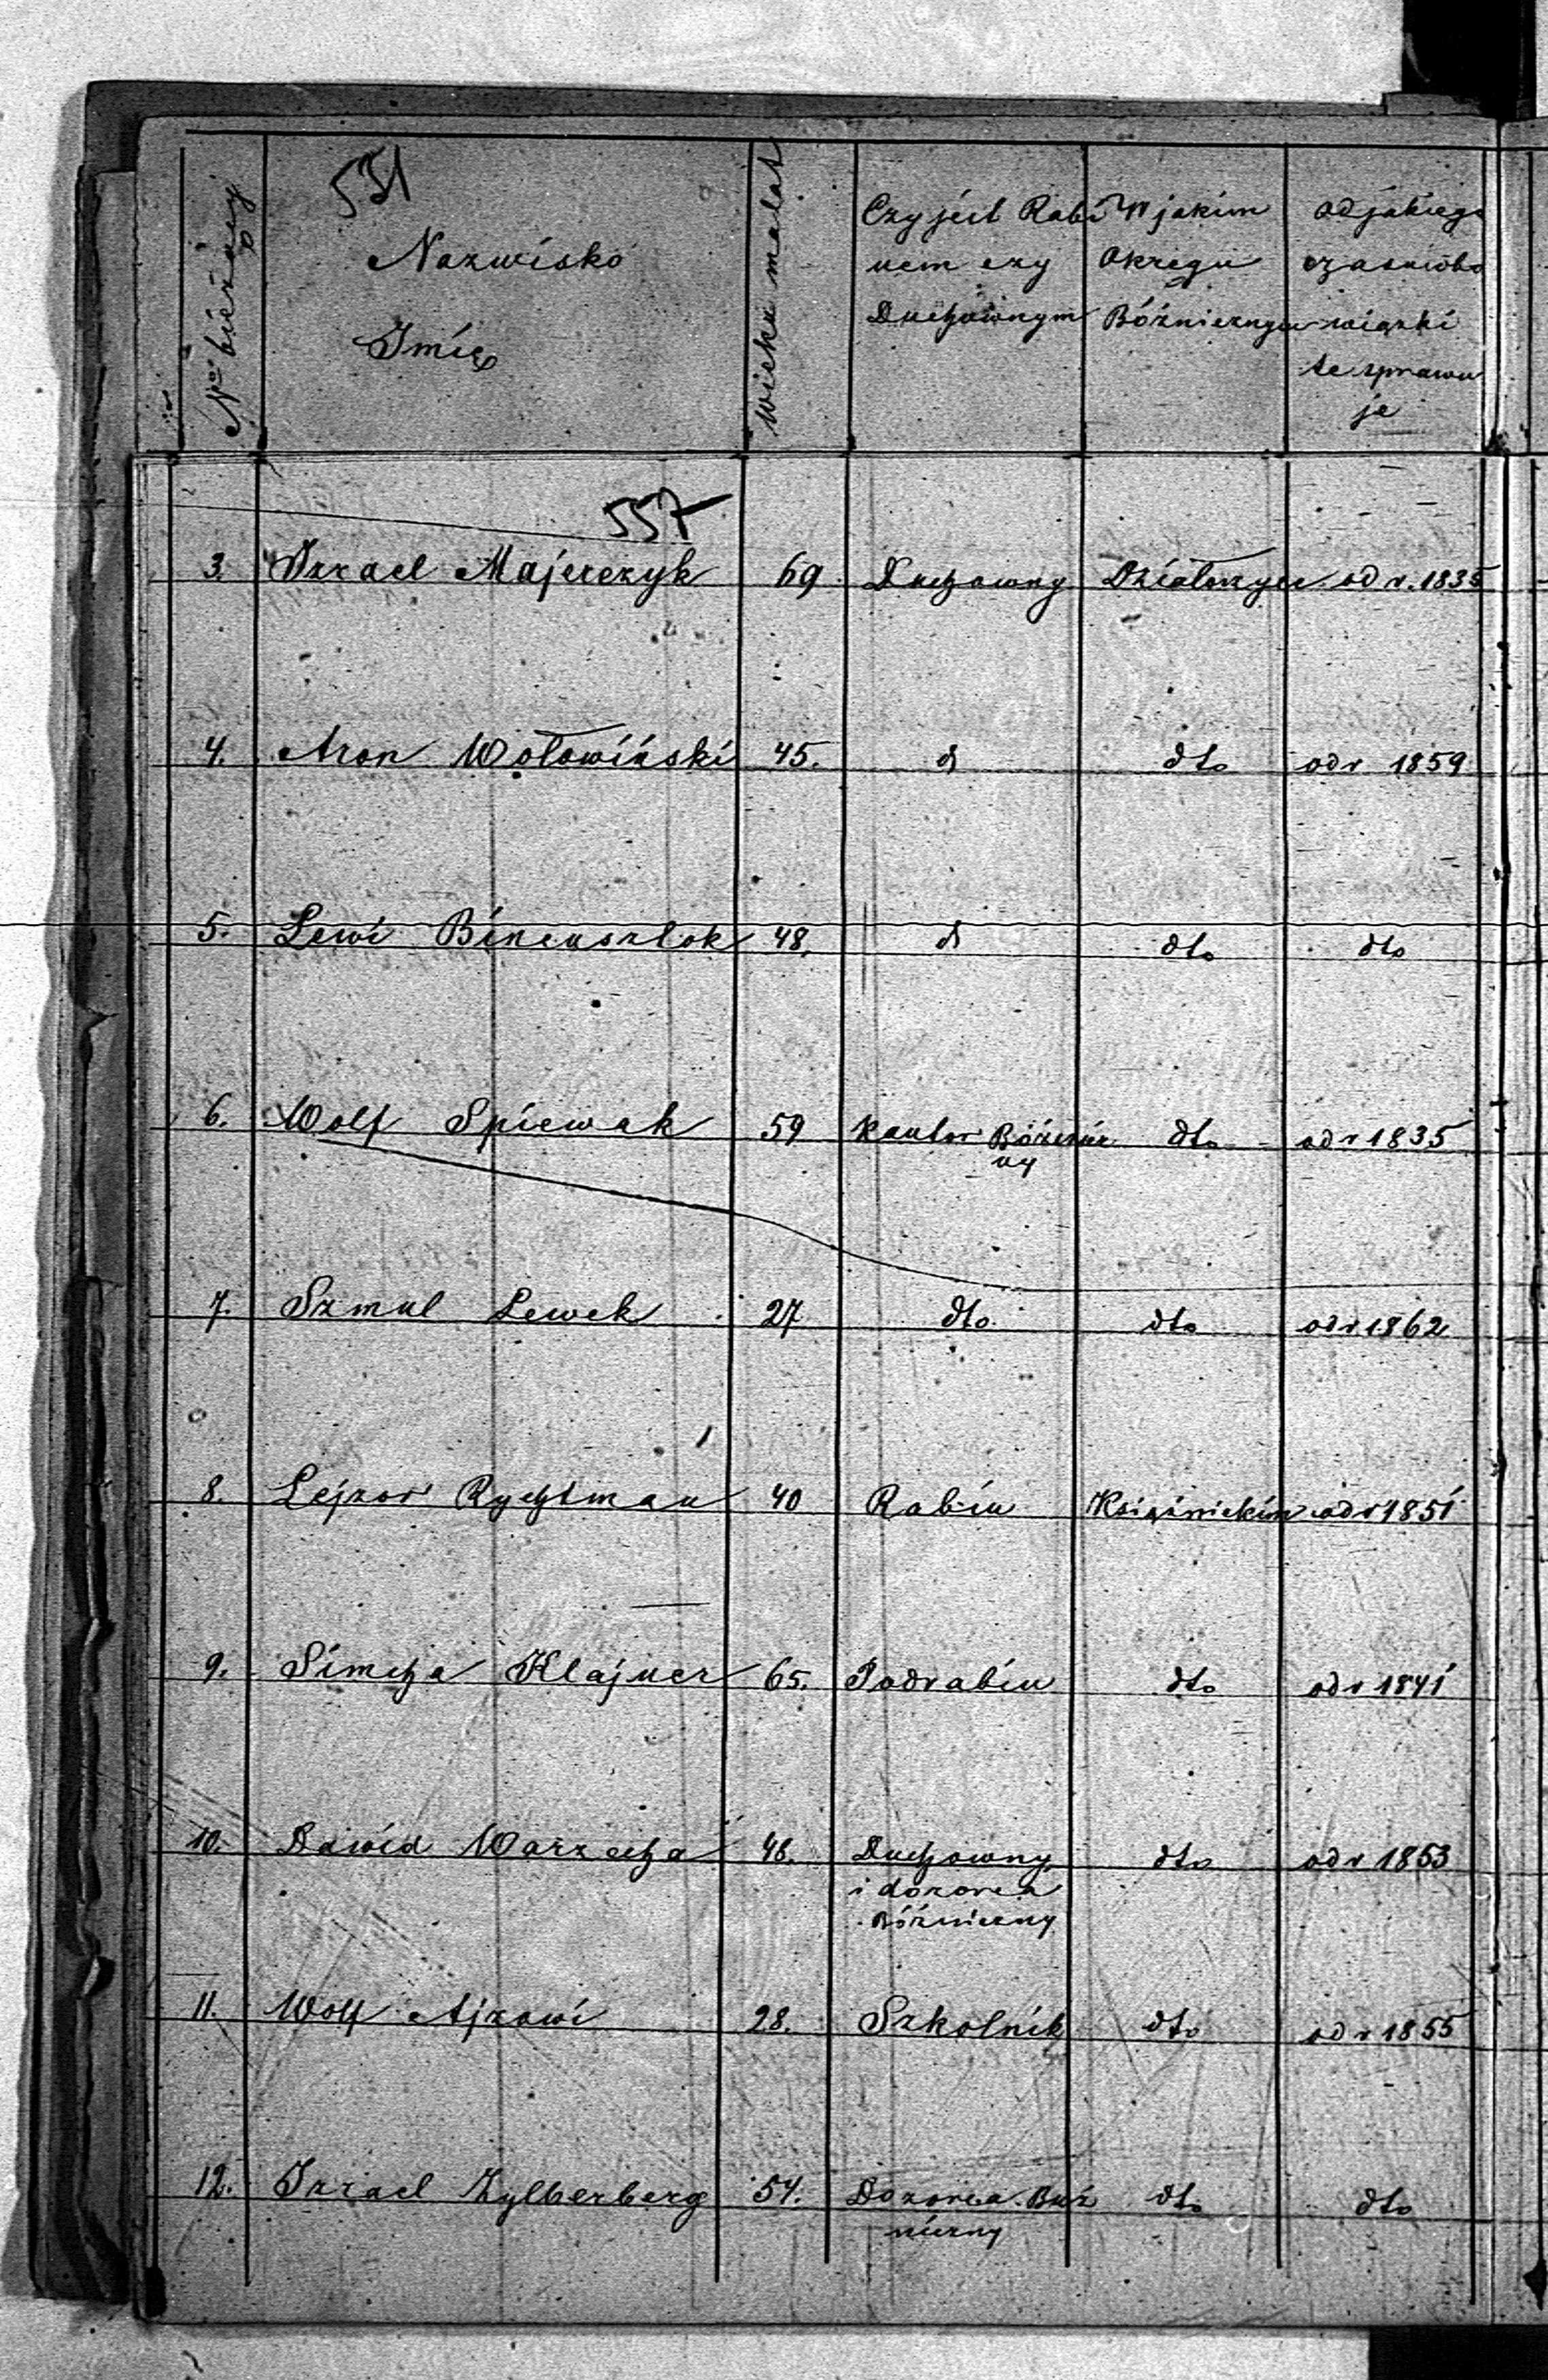 531
N<sup>o</sup> bieżący
Nazwisko
Imię
wieku ma lat
Czy jest Rabi
nem czy
Duchownym
W jakim
Okręgu
Bóżniczym
od jakiego
czasu obo
wiązki
te sprawu
je
557
3. Izrael Majerczyk 69 Duchowny Działoszyce od r. 1835
4. Aron Wołowiński 45. dt dto od r 1859
5. Lewi Binensztok 48. dt dto dto
6. Wolf Spiewak 59 Kantor Bóżnicz dto od r 1835
ny
7. Szmul Lewek 27 dto dto od r 1862
8. Lejzor Rychtman 40 Rabin Książnickim od r 1851
9. Simcha Klajner 65. Podrabin dto od r 1841
10. Dawid Warzecha 46. Duchowny dto od r 1853
i dozorca
Bóżniczny
11. Wolf Ajzowi 28. Szkolnik dto od r 1855
12. Izrael Zylberberg 54. Dozorca Buż dto dto
niczny